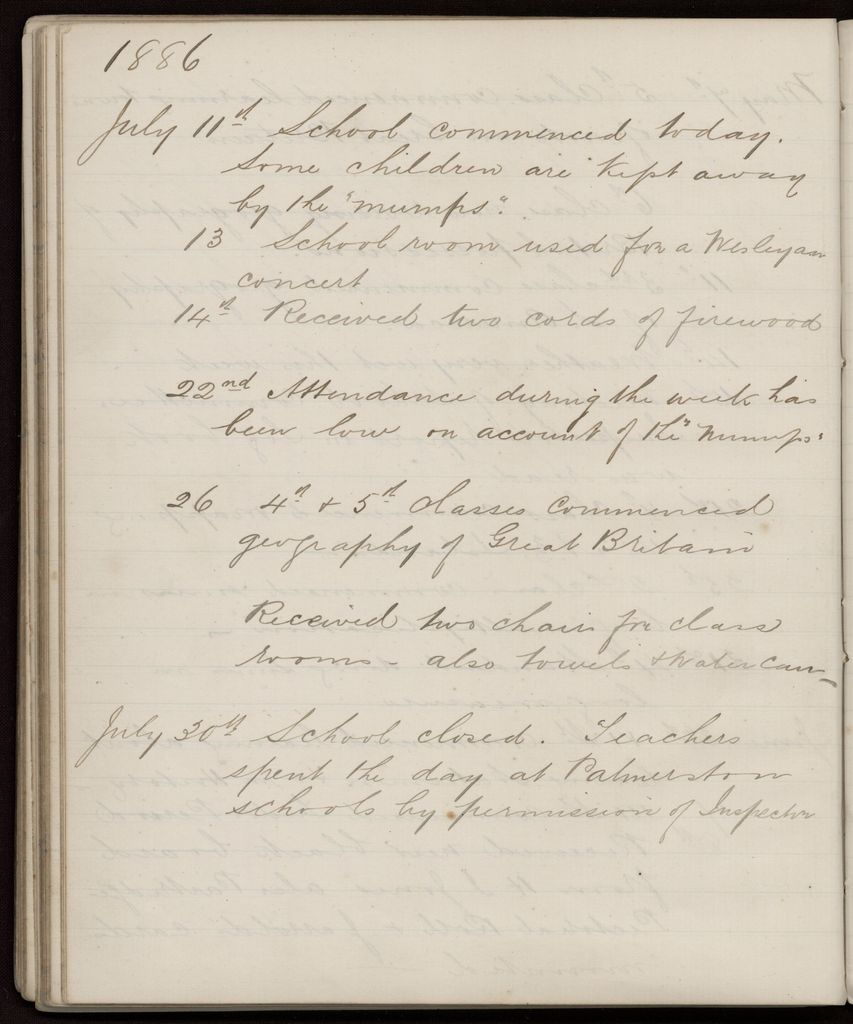 1886
July 11th School commenced today.
Some children are kept away
by the "mumps".
13 School room used for a Wesleyan
concert
14th Received two cords of firewood
22nd Attendance during the week has
been low on account of the "mumps"
26 4th & 5th classes commenced
geography of Great Britain
Received two chairs for class
rooms - also towels & water can
July 30th School closed. Teachers
spent the day at Palmerston
schools by permission of Inspector